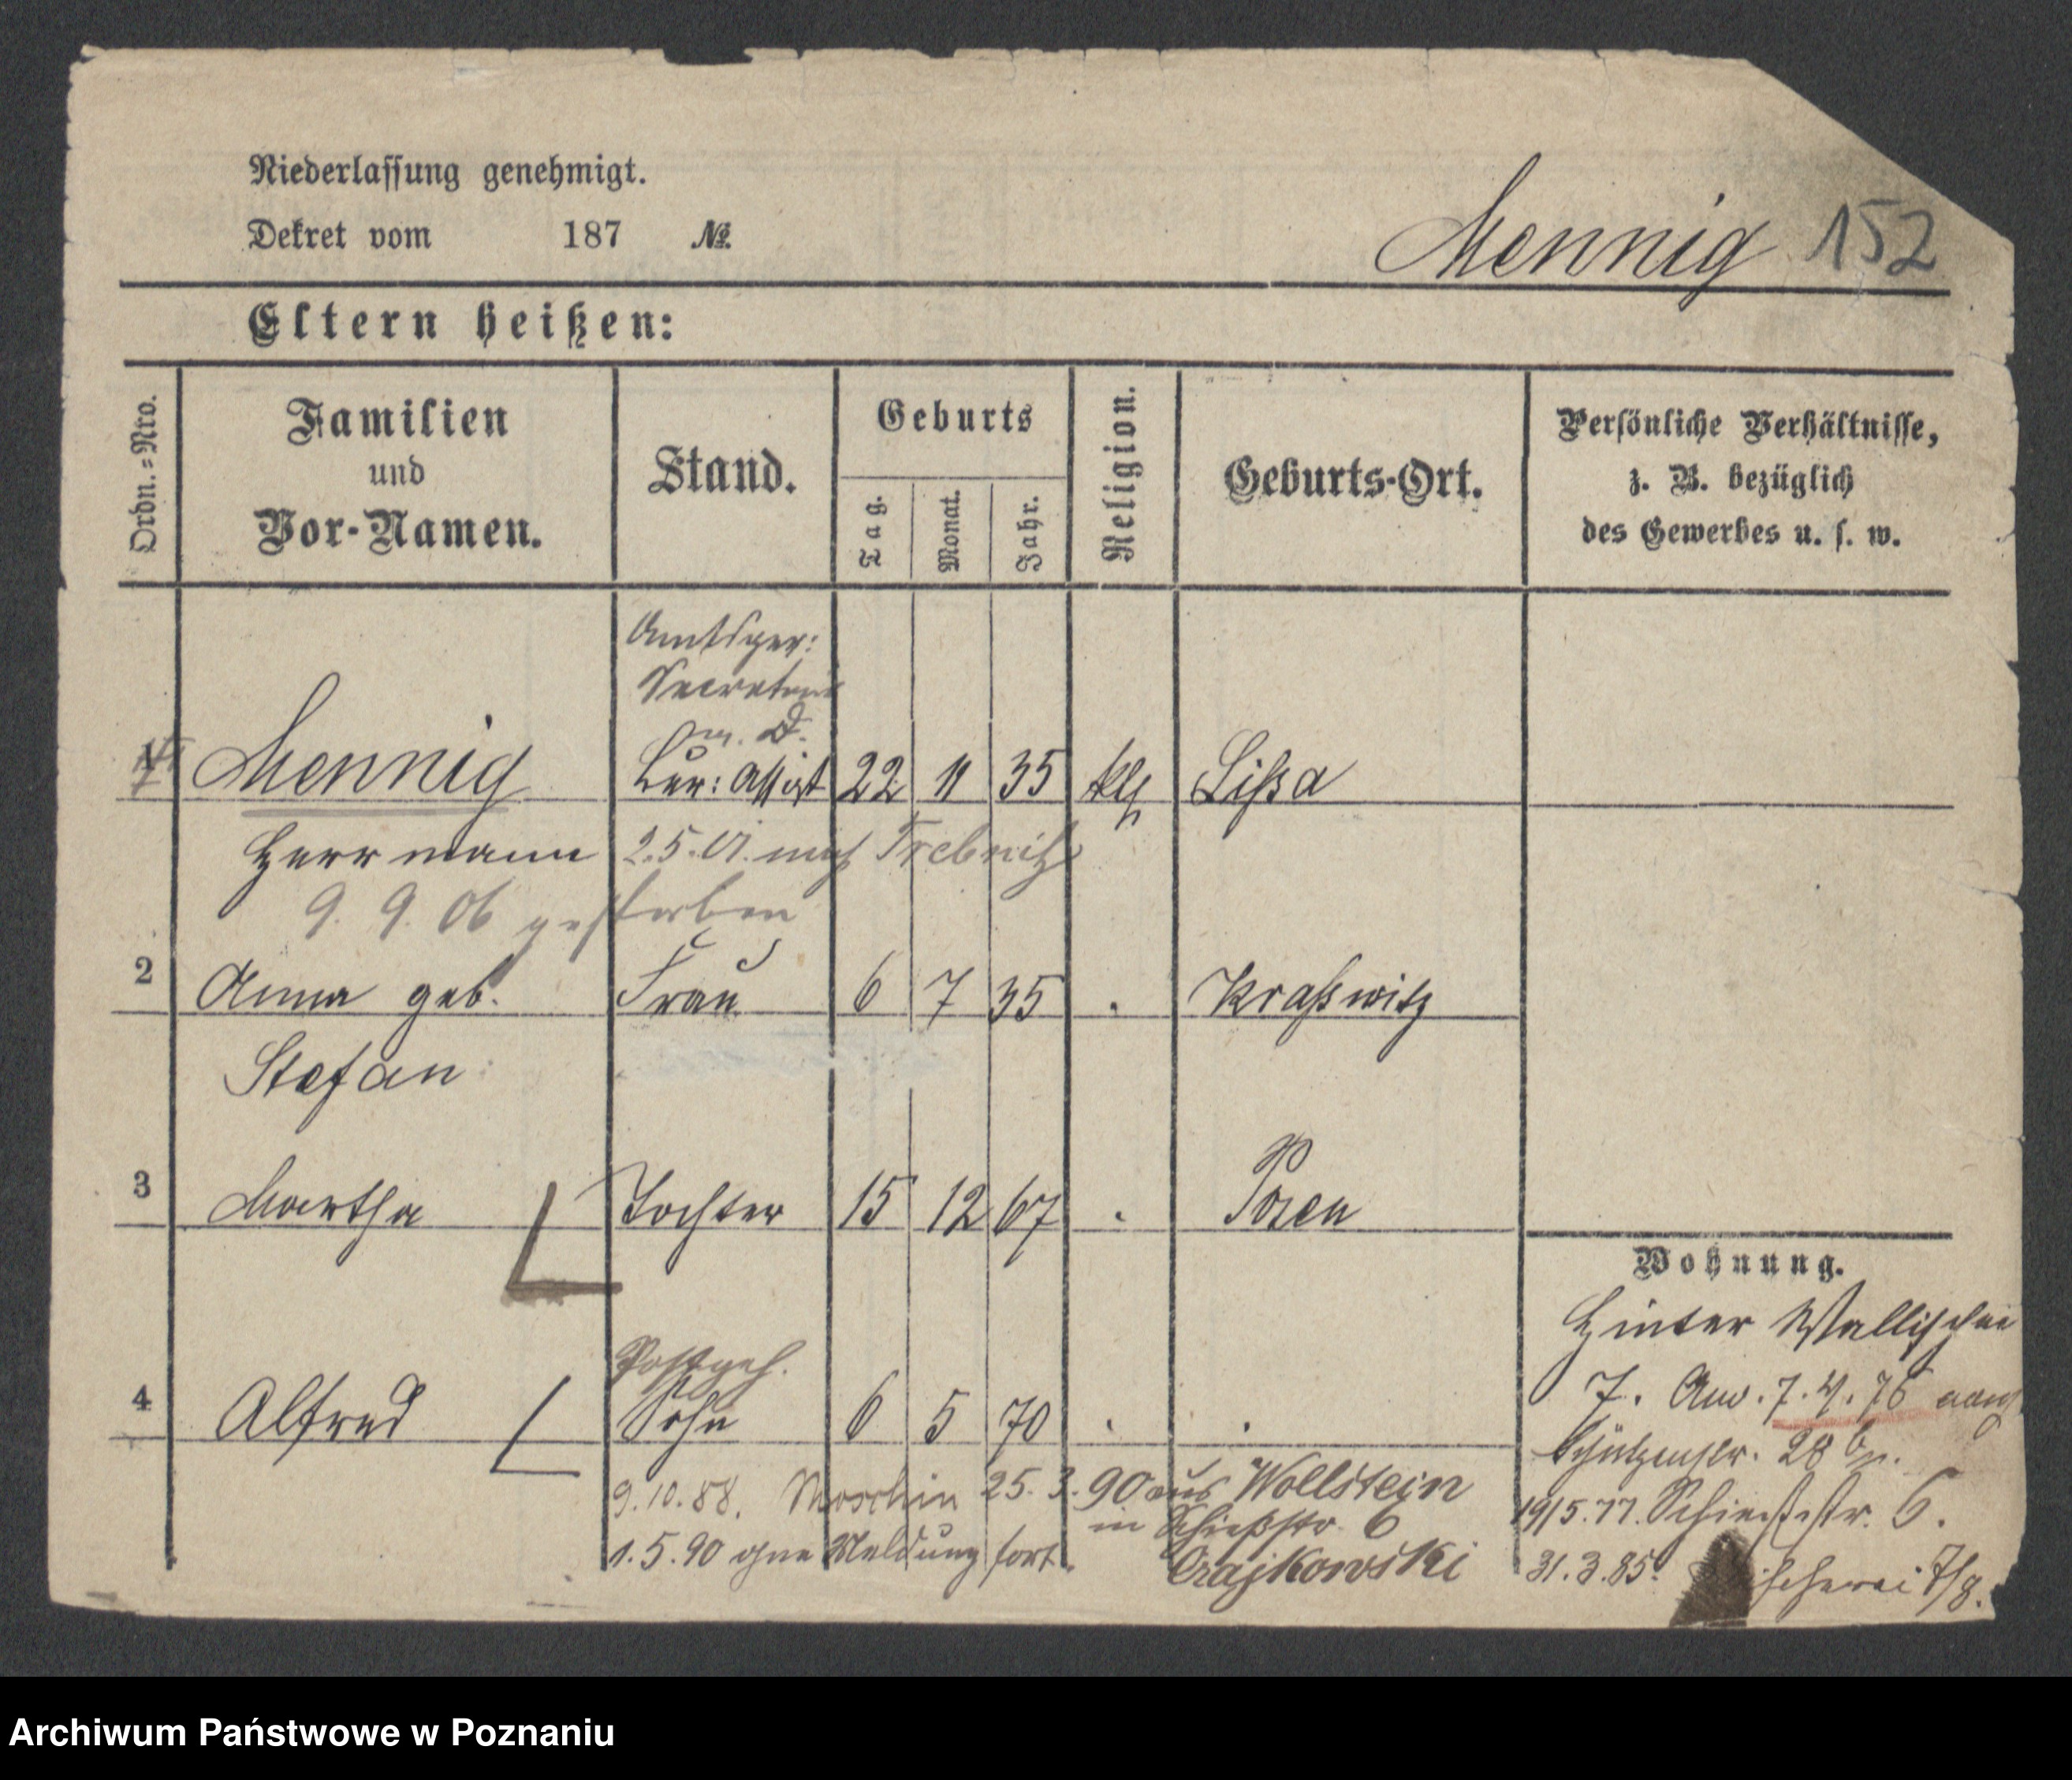 Niederlassung genehmigt.
Dekret vom 187 №.
Mennig 152
Eltern heißen:
Ordn.=Nro.
Familien
und
Vor-Namen.
Stand.
Geburts
Tag.
Monat.
Jahr.
Religion.
Geburts-Ort.
Persönliche Verhältnisse,
z. B. bezüglich
des Gewerbes u. s. w.
Amtsger:
Secretair
a. D.
1 Mennig Bur: Assist 22 11 35 kth Lissa
Herrmann 2.5.01. nach Trebnitz
9. 9. 06 gestorben
2 Anna geb. Frau 6 7 35 . Krasswitz
Stefan
3 Martha Tochter 15 12 67 . Posen
Wohnung.
Hinter Wallischei
7. Anv. 7.4.76
Postgeh.
4 Alfred Sohn 6 5 70 . .
Schützenstr. 28
9.10.88. Moschin 25.3.90 aus Wollstein
in Schießstr. 6
1.5.90 ohne Meldung fort.
Czajkowski
19/5.77. Schießstr. 6.
31.3.85. Fischerei 7/8.
Archiwum Państwowe w Poznaniu